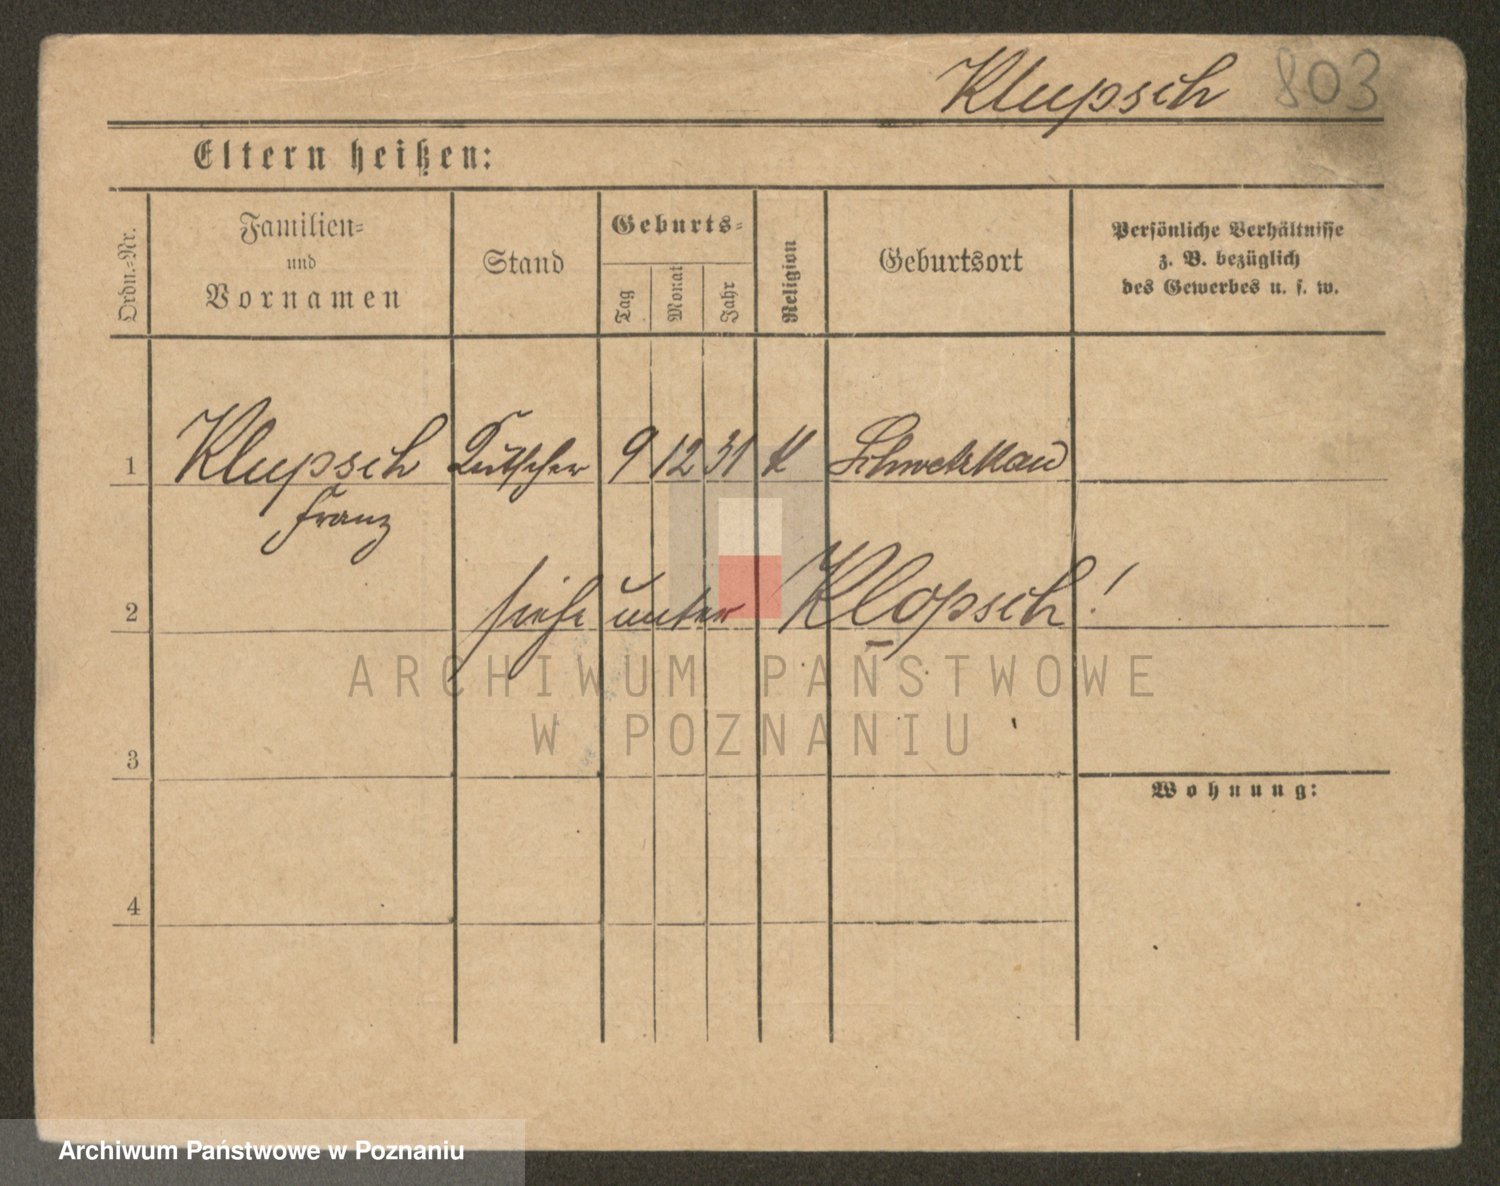 Klupsch 803
Eltern heißen:
Ordn.-Nr.
Familien-
und
Vornamen
Stand
Geburts-
Tag
Monat
Jahr
Religion
Geburtsort
Persönliche Verhältnisse
z. B. bezüglich
des Gewerbes u. s. w.
1 Klupsch Kutscher 9 12 31 K Schwetzkau
Franz
2 siehe unter Klopsch!
ARCHIWUM PAŃSTWOWE
W POZNANIU
3
Wohnung:
4
Archiwum Państwowe w Poznaniu